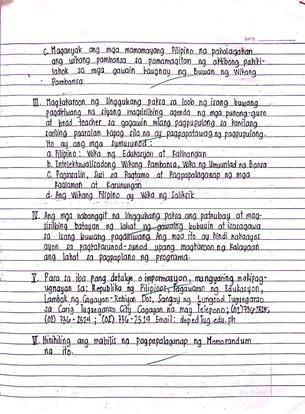 DATE
C. Maganyak ang mga mamamayang Pilipino na pahalagahan
ang wikang pambansa sa pamamagitan ng aktibong pakiki-
lahok sa mga gawain kaugnay ng Buwan ng Wikang
Pambansa.
III. Magkakaroon ng lingguhang paksa sa loob ng isang buwang
pagdiriwang na siyang magsisilbing agenda ng mga punong-guro
at head teacher sa gagawin nilang pagpupulong sa kanilang
sariling paaralan tapag sila na ay pagpapatawag ng pagpupulong.
Ito ay ang mga sumusunod:
a. Filipino: Wika ng Edukasyon at Kalinangan
b. Intelektuwalisadong Wikang Pambansa, Wika ng Umuunlad na Bansa
c. Pagsasalin, Susi sa Pagtamo at Pagpapalaganap ng mga
Kaalaman at Karunungan
d. Ang Wikang Filipino ay Wika ng Saliksik
IV. Ang mga nabanggit na lingguhang paksa ang patnubay at mag-
sisilbing batayan ng lahat ng gawaing bubuuin at isasagawa
sa isang buwang pagdiriwang. Ang mga ito ay hindi nakaayos
ayon sa pagkakasunod-sunod upang magkaroon ng kalayaan
ang lahat sa pagpaplano ng programa.
V. Para sa iba pang detalye o impormasyon, mangyaring makipag-
ugnayan sa: Republika ng Pilipinas, Kagawaran ng Edukasyon,
Lambak ng Cagayan-Rehiyon Dos, Sangay ng Lungsod Tuguegarao
sa Carig Tuguegarao City Cagayan na may Telepono; (02) 736-2525;
(02) 736-2524; (02) 736-2519 Email: deped tug.edu.ph
VI. Hinihiling ang mabilis na Pagpapalaganap ng Memorandum
na ito.